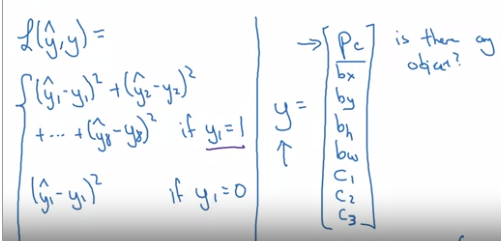 ℒ(ŷ,y) =
(ŷ₁-y₁)² + (ŷ₂-y₂)²
+ ... + (ŷ₈-y₈)² if y₁=1
(ŷ₁-y₁)² if y₁=0
y =
→
pc
bx
by
bh
bw
c₁
c₂
c₃
↑
is there any
object?